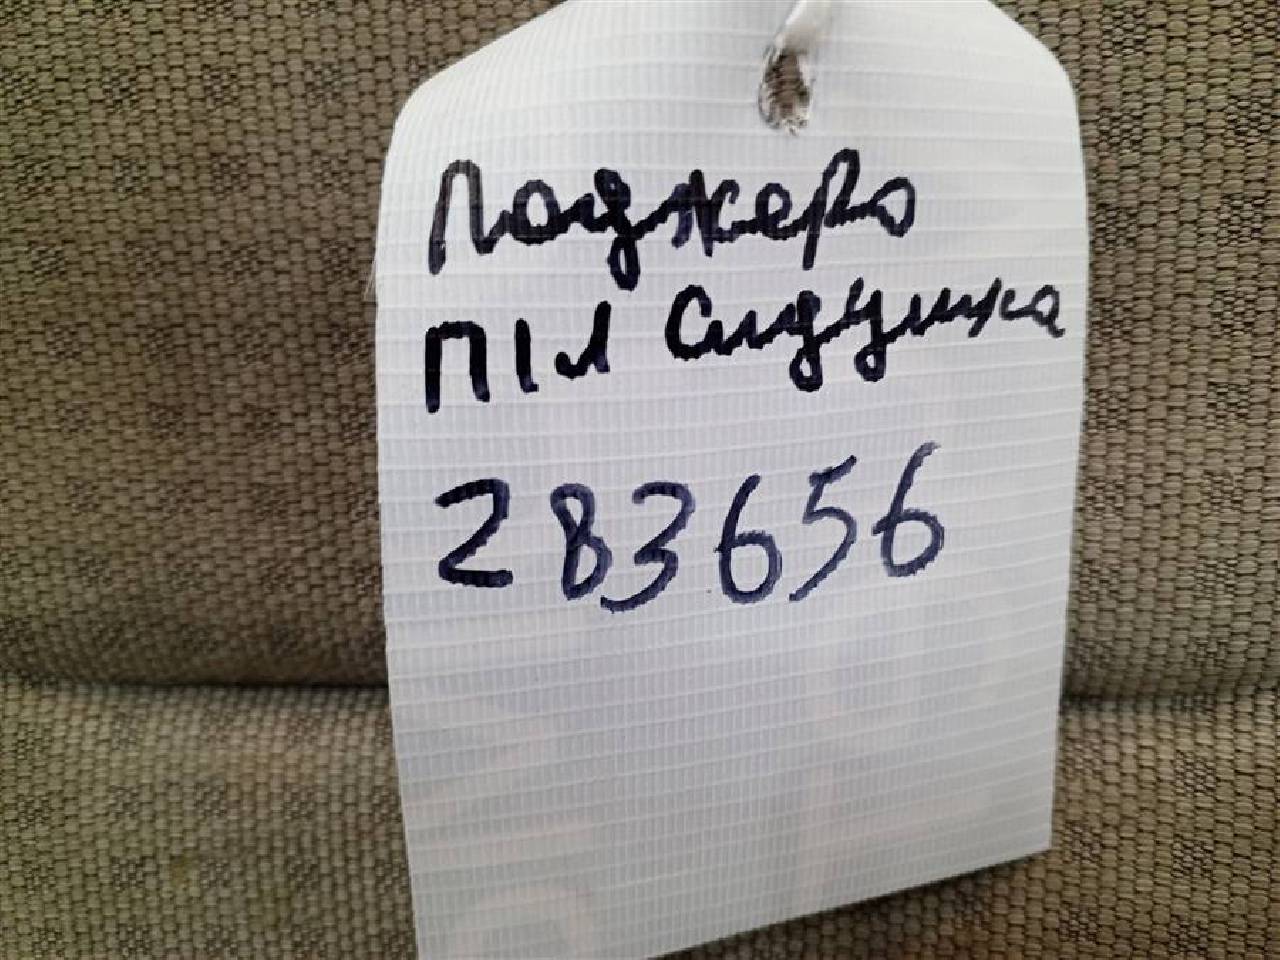 Паджеро
ПІЛ Сидушка
283656